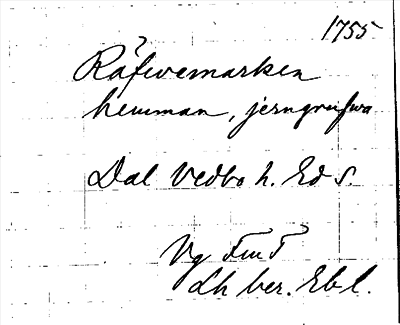 1755
Räfwemarken
hemman, jerngrufwa
Dal Vedbo h. Ed s.
Vg Fm F
Lh ber. Ebl.